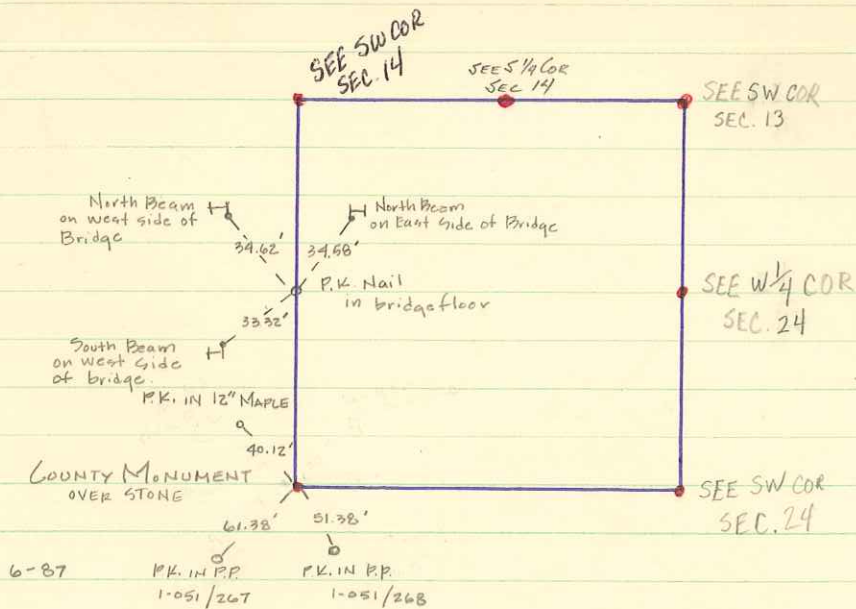 SEE SW COR
SEC. 14
SEE S 1/4 COR
SEC 14
SEE SW COR
SEC. 13
North Beam
on west side of
Bridge
North Beam
on East Side of Bridge
34.62'
34.58'
P.K. Nail
in bridge floor
33.32'
SEE W 1/4 COR
SEC. 24
South Beam
on west side
of bridge.
P.K. IN 12" MAPLE
40.12'
COUNTY MONUMENT
OVER STONE
SEE SW COR
SEC. 24
61.38'
51.38'
6-87
P.K. IN P.P.
1-051/267
P.K. IN P.P.
1-051/268